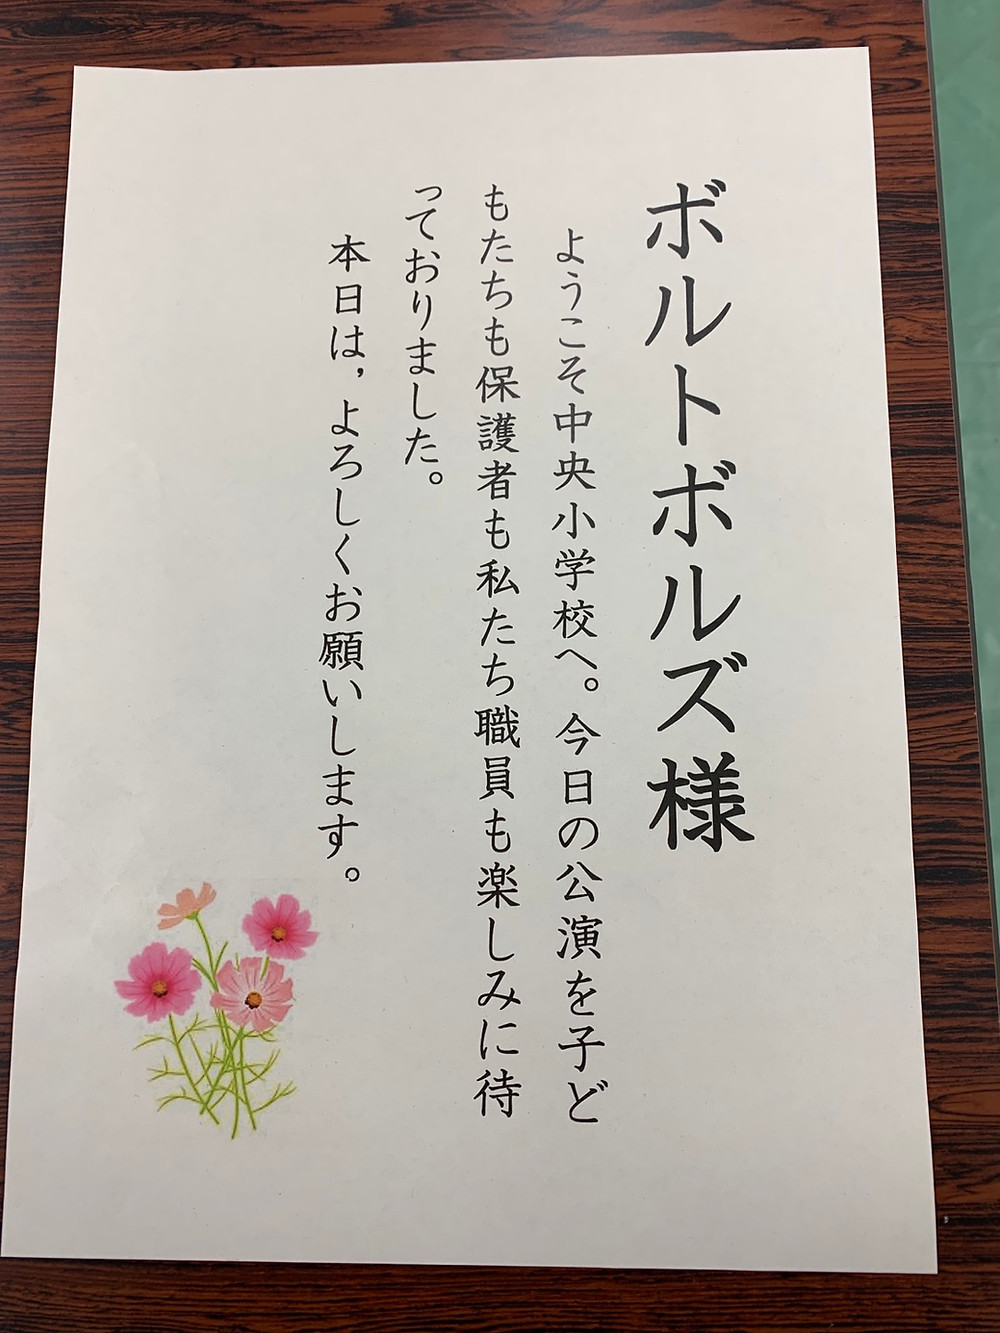 ボルトボルズ様
ようこそ中央小学校へ。今日の公演を子ど
もたちも保護者も私たち職員も楽しみに待
っておりました。
本日は，よろしくお願いします。